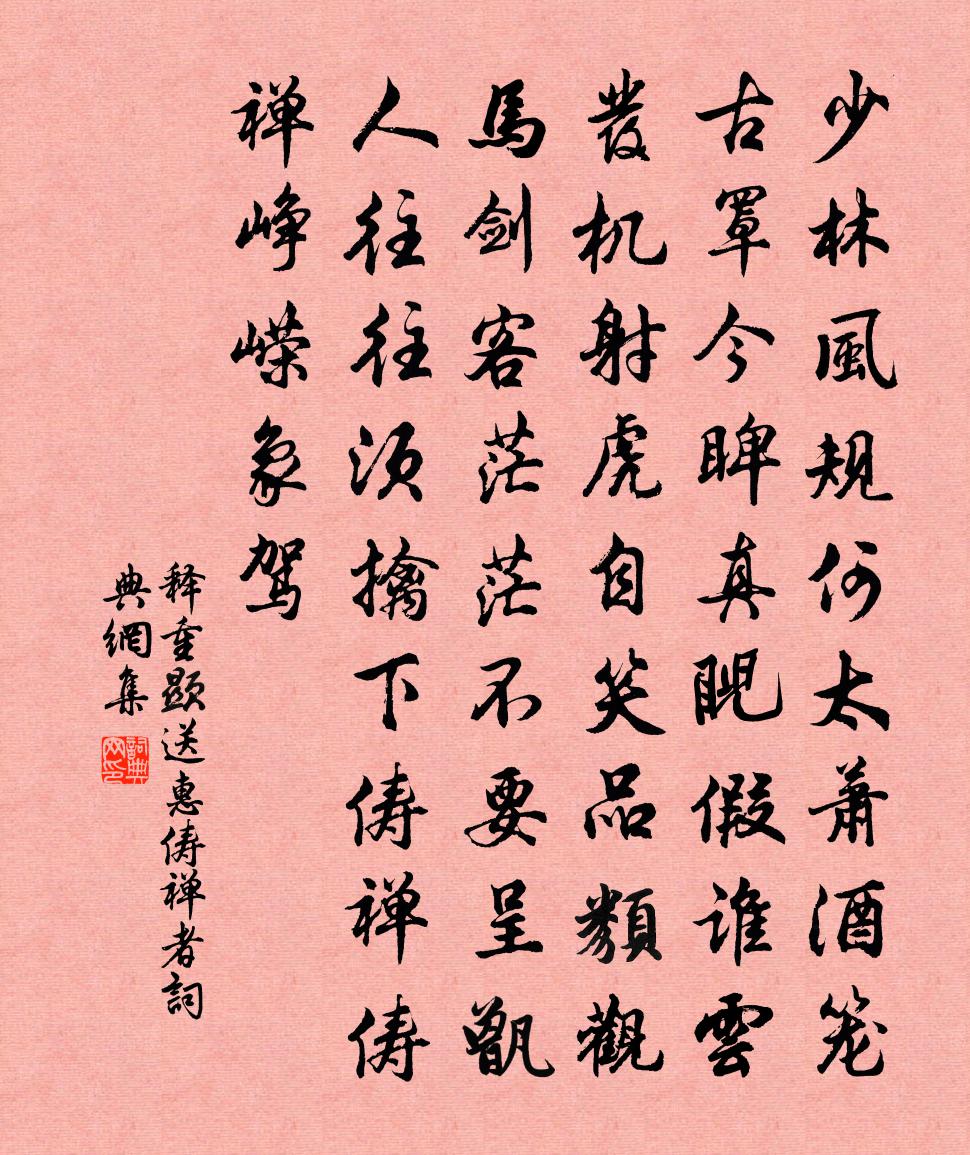 少林風规何太萧酒笼
古罩今睥真睨假谁雲
發机射虎自笑品類觀
馬剑客茫茫不要呈甑
人往往须擒下俦禅俦
禅峥嵘象驾
释重顯送惠俦禅者詞
典網集
詞典网印